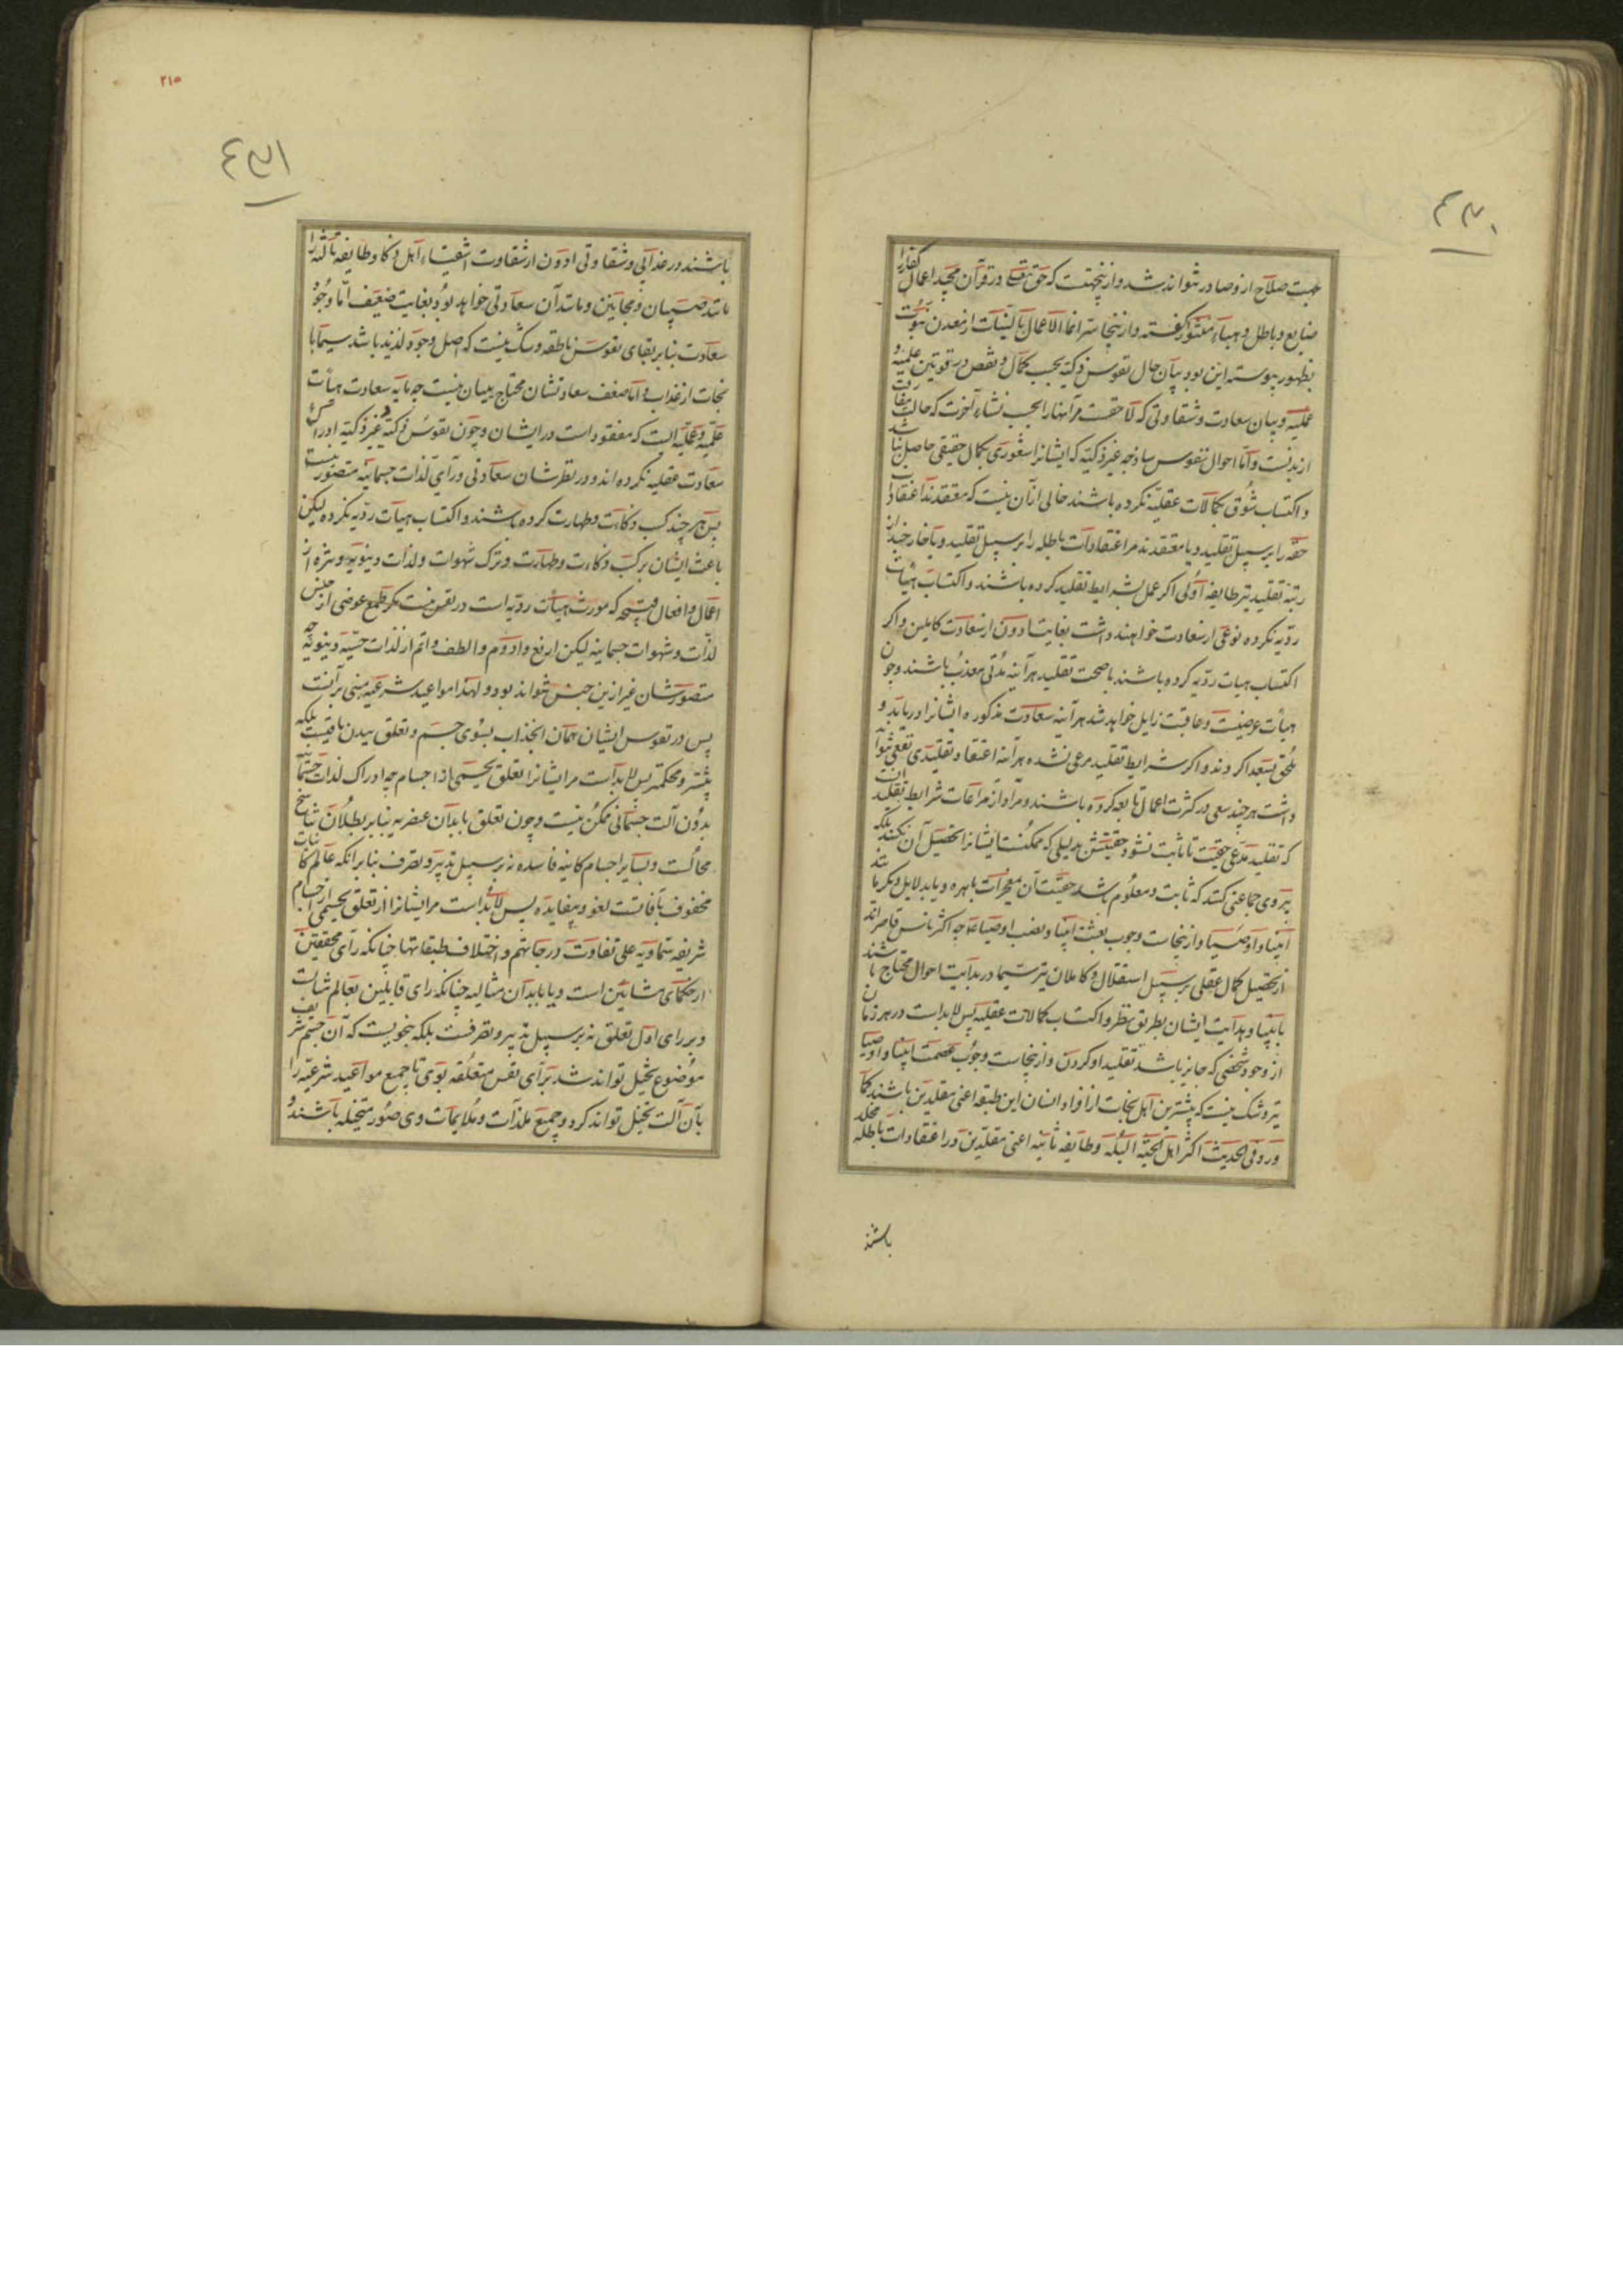 ٤٣٠
جهت صلاح ازو صادر نتواند شد و ازینجهتست که حق تعالی در قرآن مجید اعمال کفار را
ضایع و باطل و هباء منثور گفته و ازینجا سر انما الاعمال بالنیات از معدن نبوت
بظهور پیوسته این بود بیان حال نفوس زکیه بحسب کمال و نقص در قوتین علمیه و
عملیه و بیان سعادت و شقاوتی که لاحقست مر آنها را بحسب نشاء آخرت که حالت مفارقت
از بدنست و اما احوال نفوس ساذجه غیر زکیه که ایشانرا شعوری بکمال حقیقی حاصل نباشد
و اکتساب شوق بکمالات عقلیه نکرده باشند خالی از آن نیست که معتقدند اعتقادات
حقه را بر سبیل تقلید و یا معتقدند مر اعتقادات باطله را بر سبیل تقلید و یا خارجند از
رتبه تقلید نیز طایفه اولی اگر عمل بشرایط تقلید کرده باشند و اکتساب هیات
ردیه نکرده نوعی از سعادت خواهند داشت بغایت ادون از سعادت کاملین و اگر
اکتساب هیات ردیه کرده باشند با صحت تقلید هر آینه مدتی معذب باشند و چون
هیات عرضیست و عاقبت زایل خواهد شد هر آینه سعادت مذکوره ایشانرا دریابد و
ملحق بسعدا گردند و اگر شرایط تقلید مرعی نشده هر آینه اعتقاد تقلیدی نفعی نتواند
داشت هر چند سعی در کثرت اعمال تابعه کرده باشند و مراد از مراعات شرایط تقلید آنست
که تقلید مدعی حقیت تا ثابت نشود حقیتش بدلیلی که ممکنست ایشانرا تحصیل آن نکنند بلکه
پیروی جماعتی کنند که ثابت و معلوم باشد حقیت آن بمعجزات باهره و یا بدلایل دیگر مانند
انبیا و اوصیا و ازینجاست وجوب بعثت انبیا و نصب اوصیا چه اکثر ناس قاصراند
از تحصیل کمال عقلی بر سبیل استقلال و کاملان نیز سیما در بدایت احوال محتاج باشند
بانبیا و هدایت ایشان بطریق نظر و اکتساب کمالات عقلیه پس لابداست در هر زمان
از وجود شخصی که جایز باشد تقلید او کردن و ازینجاست وجوب عصمت انبیا و اوصیا
نیز و شک نیست که بیشترین اهل نجات از افراد انسان این طبقه اعنی مقلدین باشند کما
ورد فی الحدیث اکثر اهل الجنه البله و طایفه ثانیه اعنی مقلدین در اعتقادات باطله مخلد
باشند
٢١٥
٤٣١
باشند در عذابی و شقاوتی ادون از شقاوت اشقیاء اهل ذکا و طایفه ثالثه را
مانند صبیان و مجانین و مانند آن سعادتی خواهد بود بغایت ضعیف اما وجود
سعادت بنا بر بقای نفوس ناطقه و شک نیست که اصل وجود لذیذ باشد سیما با
نجات از عذاب و اما ضعف سعادتشان محتاج ببیان نیست چه مایه سعادت هیات
علمیه و عملیه است که مفقود است در ایشان و چون نفوس زکیه غیر ذکیه ادراک
سعادت عقلیه نکرده اند و در نظرشان سعادتی ورای لذات جسمانیه متصور نیست
پس هر چند کسب زکائت و طهارت کرده باشند و اکتساب هیات ردیه نکرده لیکن
باعث ایشان بر کسب زکاءت و طهارت و ترک شهوات و لذات دنیویه و تنزه از
اعمال و افعال قبیحه که مورث هیأت ردیه است در نفس نیست مگر طمع عوضی از جنس
لذات و شهوات جسمانیه لیکن ارفع و ادوم و الطف و اتم از لذات حسیه دنیویه چه
متصورشان غیر ازین جنس نتواند بود و لهذا مواعید شرعیه مبنی بر آنست
پس در نفوس ایشان همان انجذاب بسوی جسم و تعلق ببدن باقیست بلکه
بیشتر و محکمتر پس لابد است مر ایشانرا تعلق بجسمی از اجسام چه ادراک لذات جسمانیه
بدون آلت جسمانی ممکن نیست و چون تعلق بابدان عنصریه بنا بر بطلان تناسخ
محالست و بسایر اجسام کاینه فاسده نه بر سبیل تدبیر و تصرف بنا بر آنکه عالم کائنات
محفوف بآفاتست لغو و بیفایده پس لابد است مر ایشانرا از تعلق بجسمی از اجسام
شریفه سماویه علی تفاوت درجاتهم و اختلاف طبقاتها چنانکه رای محققین
از حکمای مشائین است و یا بابدان مثالیه چنانکه رای قایلین بعالم مثالست
و بر رای اول تعلق نه بر سبیل تدبیر و تصرفست بلکه بنحویست که آن جسم شریف
موضوع تخیل تواند شد برای نفس متعلقه بوی تا جمیع مواعید شرعیه را
بآن آلت تخیل تواند کرد و جمیع ملذات و ملایمات وی صور متخیله باشند و